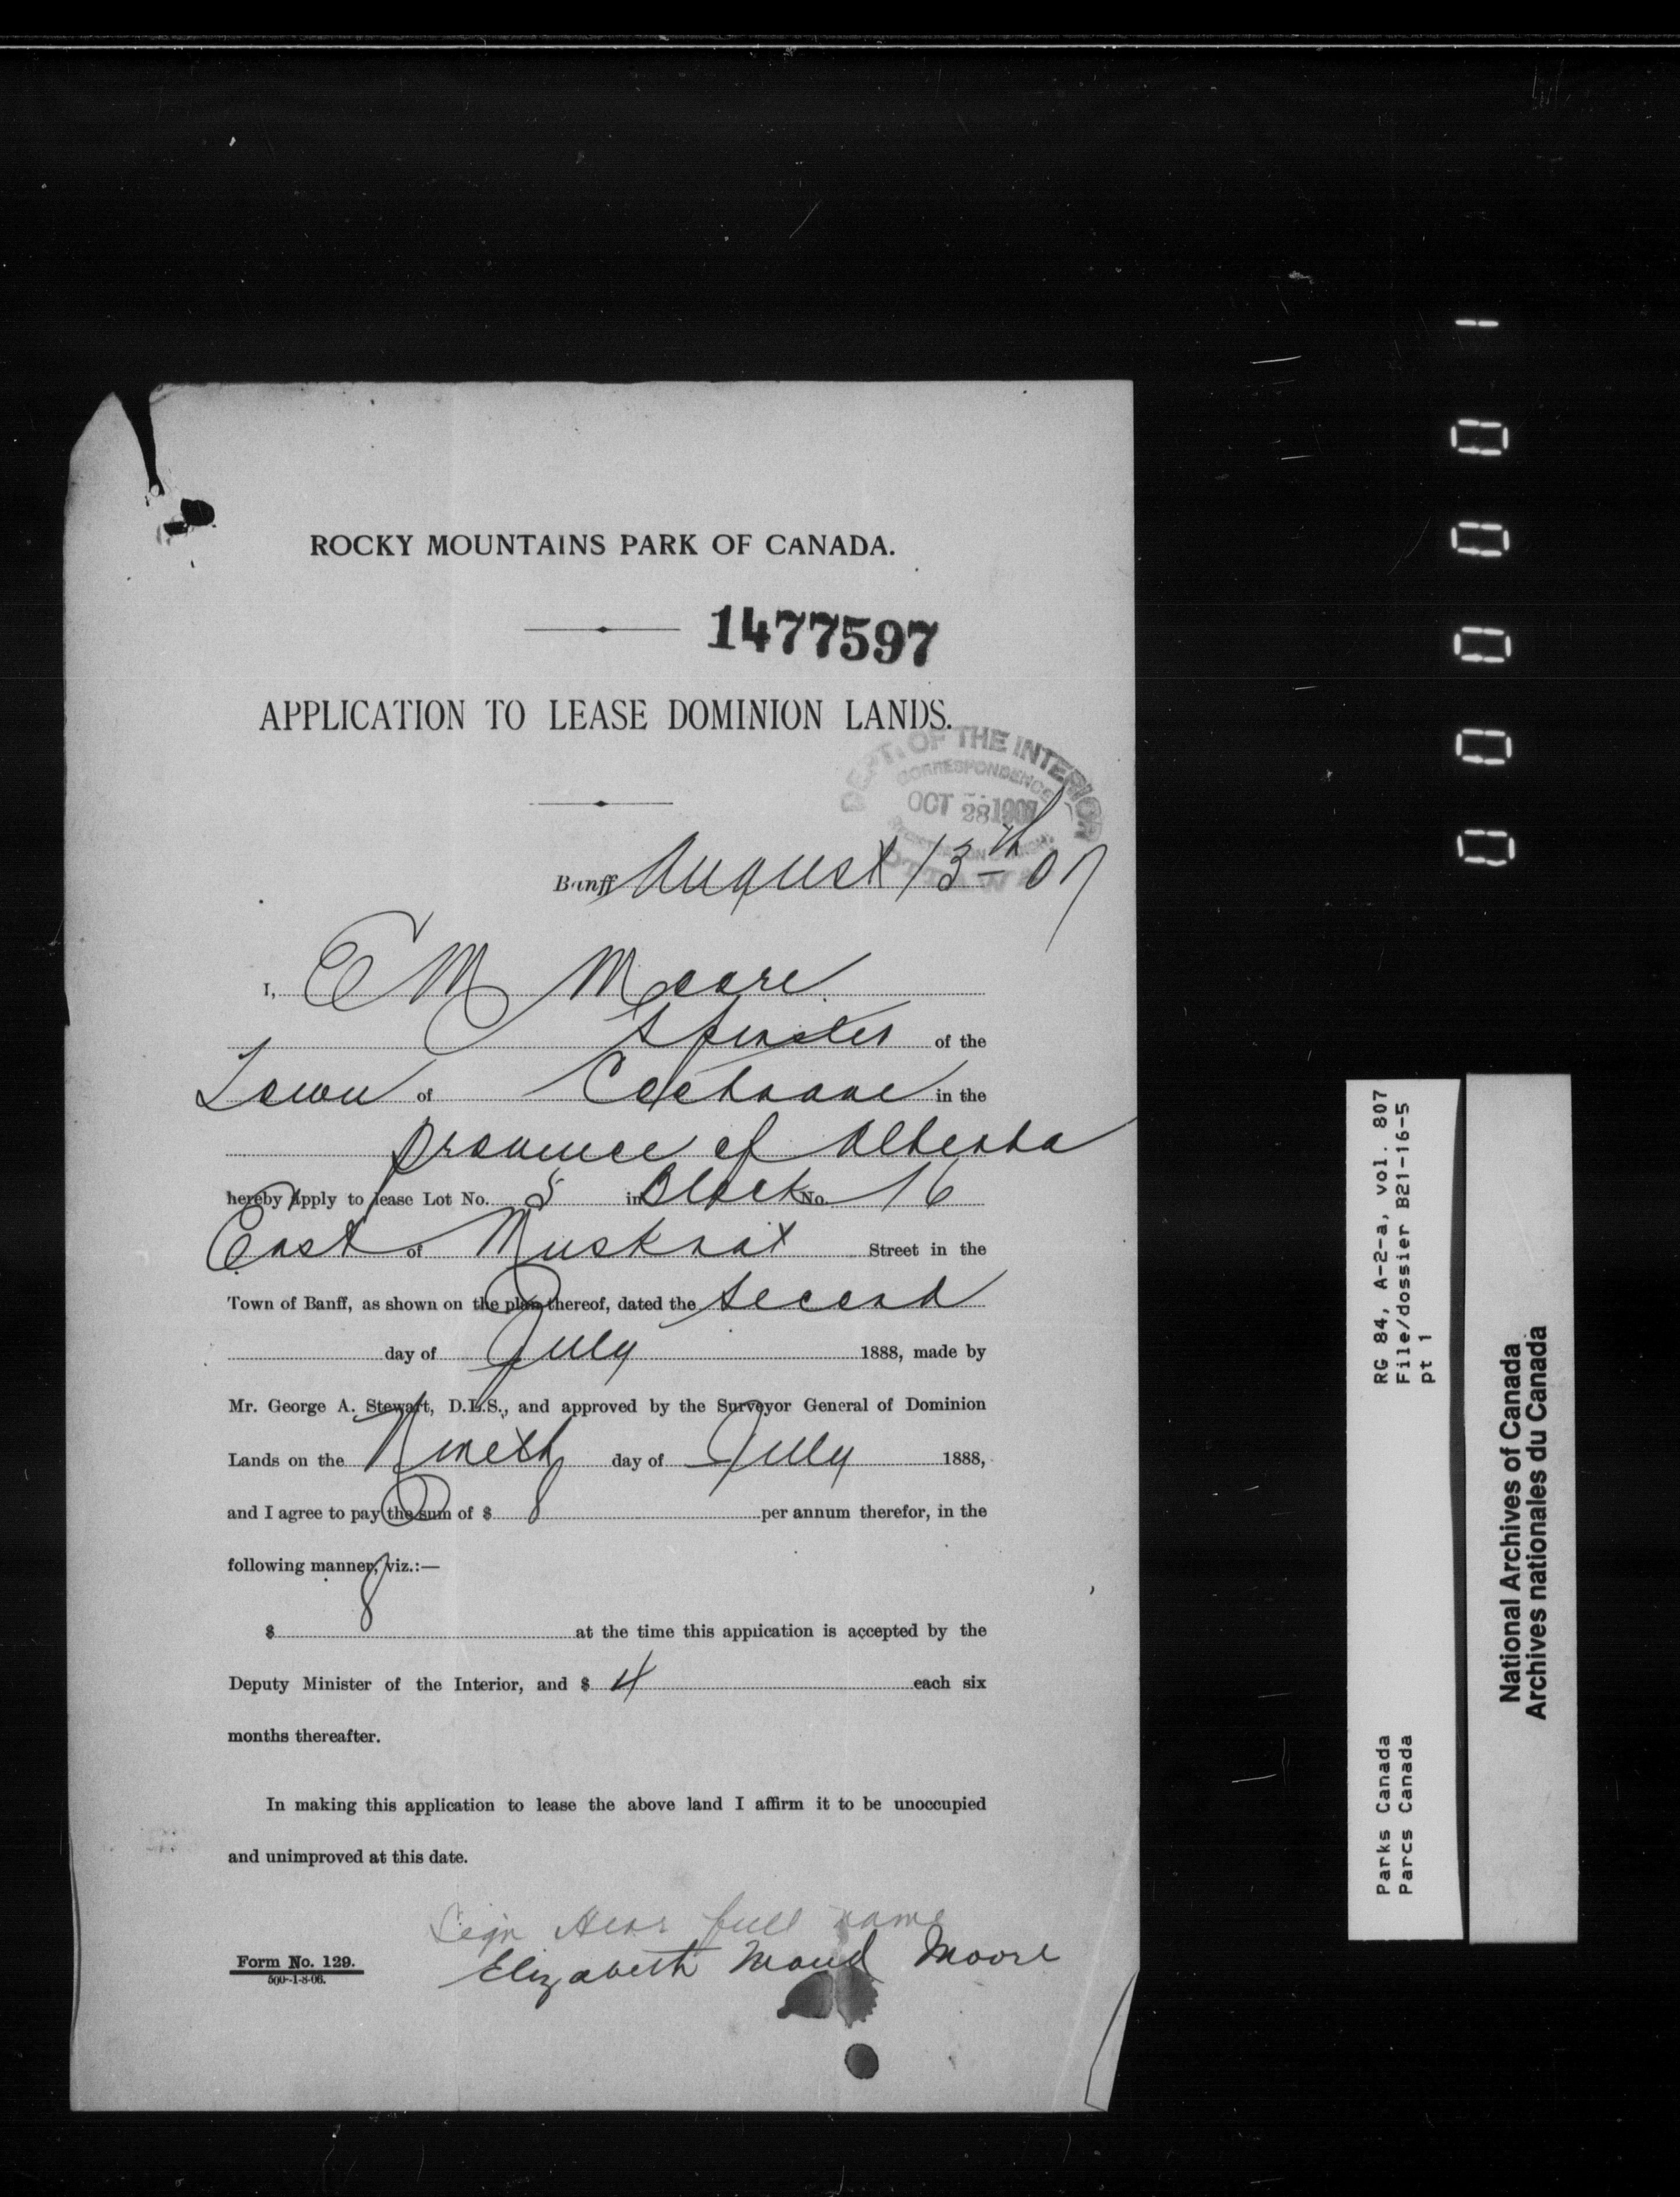 ROCKY MOUNTAINS PARK OF CANADA.
1477597
APPLICATION TO LEASE DOMINION LANDS.
DEPT. OF THE INTERIOR
CORRESPONDENCE
OCT 28 1907
OTTAWA
Banff August 13th - 07
I, E M Moore
Spinster of the
Town of Cochrane in the
province of Alberta
hereby apply to lease Lot No. 5 in Block No. 16
East of Muskrat Street in the
Town of Banff, as shown on the plan thereof, dated the second
day of July 1888, made by
Mr. George A. Stewart, D.L.S., and approved by the Surveyor General of Dominion
Lands on the Nineth day of July 1888,
and I agree to pay the sum of $ 8 per annum therefor, in the
following manner, viz.:—
$ 8 at the time this application is accepted by the
Deputy Minister of the Interior, and $ 4 each six
months thereafter.
In making this application to lease the above land I affirm it to be unoccupied
and unimproved at this date.
Sign Hear full name
Elizabeth Maud Moore
Form No. 129.
500-1-8-06.
000001
RG 84, A-2-a, vol. 807
File/dossier B21-16-5
pt 1
Parks Canada
Parcs Canada
National Archives of Canada
Archives nationales du Canada